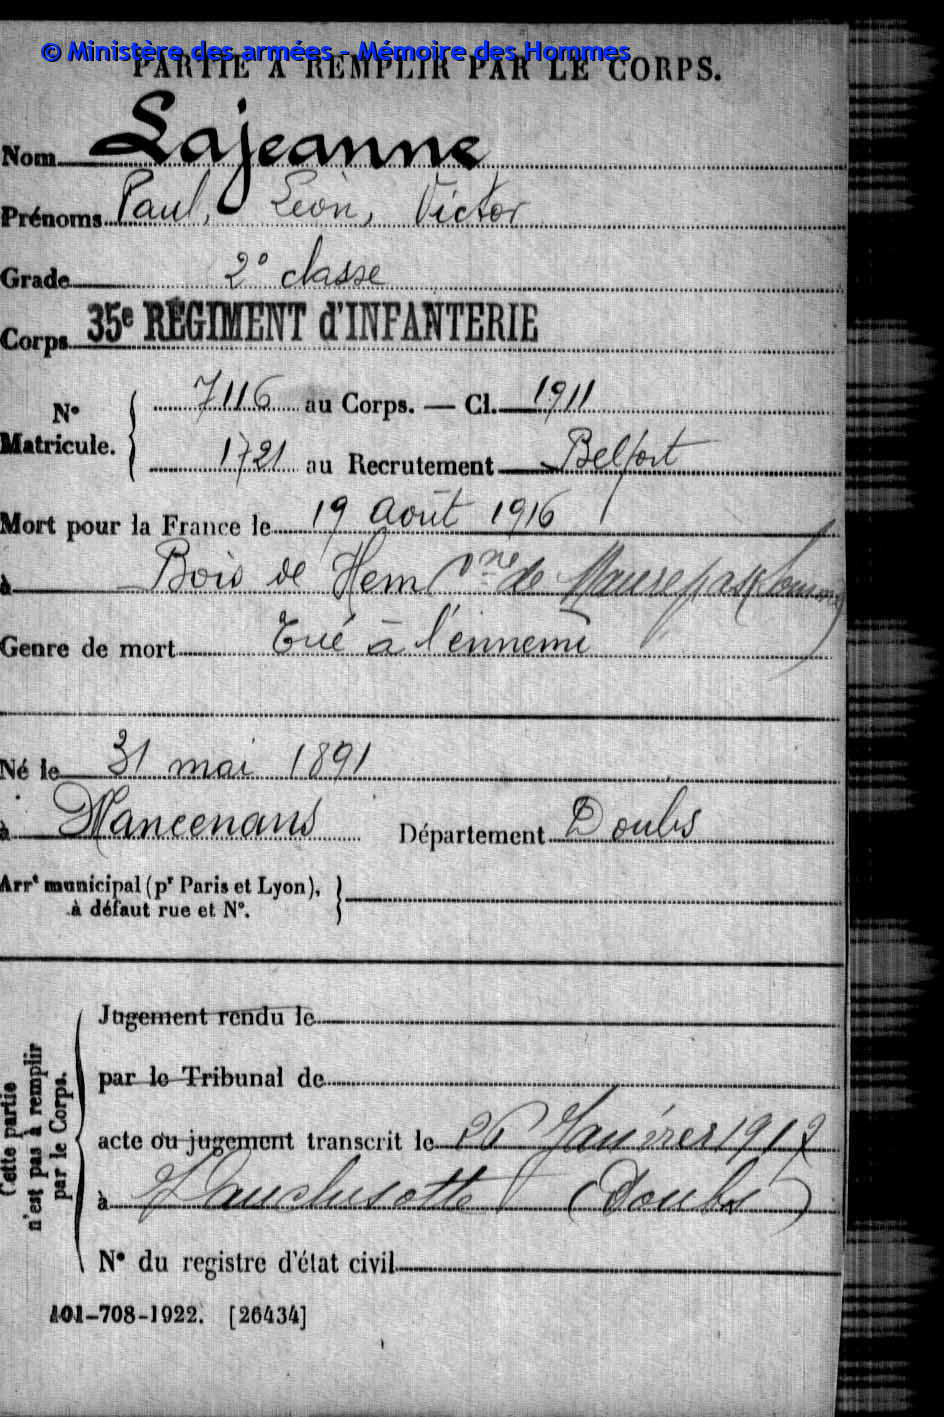 © Ministère des armées - Mémoire des Hommes
PARTIE A REMPLIR PAR LE CORPS.
Nom Lajeanne
Prénoms Paul, Léon, Victor
Grade 2e classe
Corps 35e RÉGIMENT d'INFANTERIE
N° Matricule. 7116 au Corps. — Cl. 1911
1721 au Recrutement Belfort
Mort pour la France le 19 Août 1916
à Bois de Hem Cne de Maurepas (Somme)
Genre de mort Tué à l'ennemi
Né le 31 mai 1891
à Mancenans Département Doubs
Arrt municipal (pr Paris et Lyon),
à défaut rue et N°.
Cette partie
n'est pas à remplir
par le Corps.
Jugement rendu le
par le Tribunal de
acte ou jugement transcrit le 26 Janvier
à Vauclusotte (Doubs)
N° du registre d'état civil
101-708-1922. [26434]